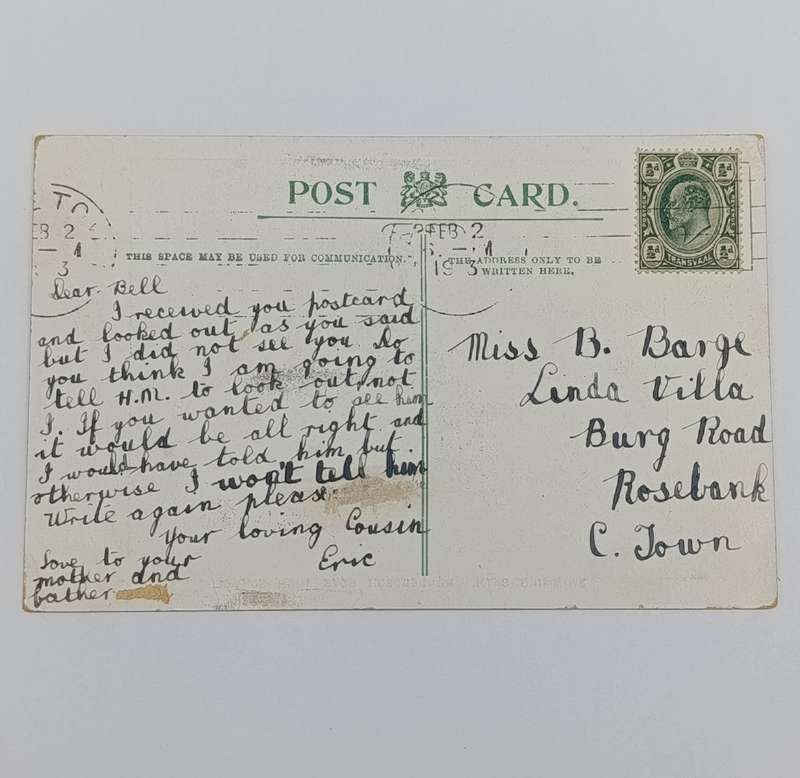 POST CARD.
THIS SPACE MAY BE USED FOR COMMUNICATION.
THE ADDRESS ONLY TO BE
WRITTEN HERE.
½d ½d
½d ½d
TRANSVAAL
FEB 2
Dear Bell
I received you postcard
and looked out as you said
but I did not see you. Do
you think I am going to
tell H.M. to look out, not
I. If you wanted to see him
it would be all right and
I would have told him but
otherwise I won't tell him
Write again please.
Your loving Cousin
Eric
Love to your
mother and
father
Miss B. Barge
Linda Villa
Burg Road
Rosebank
C. Town